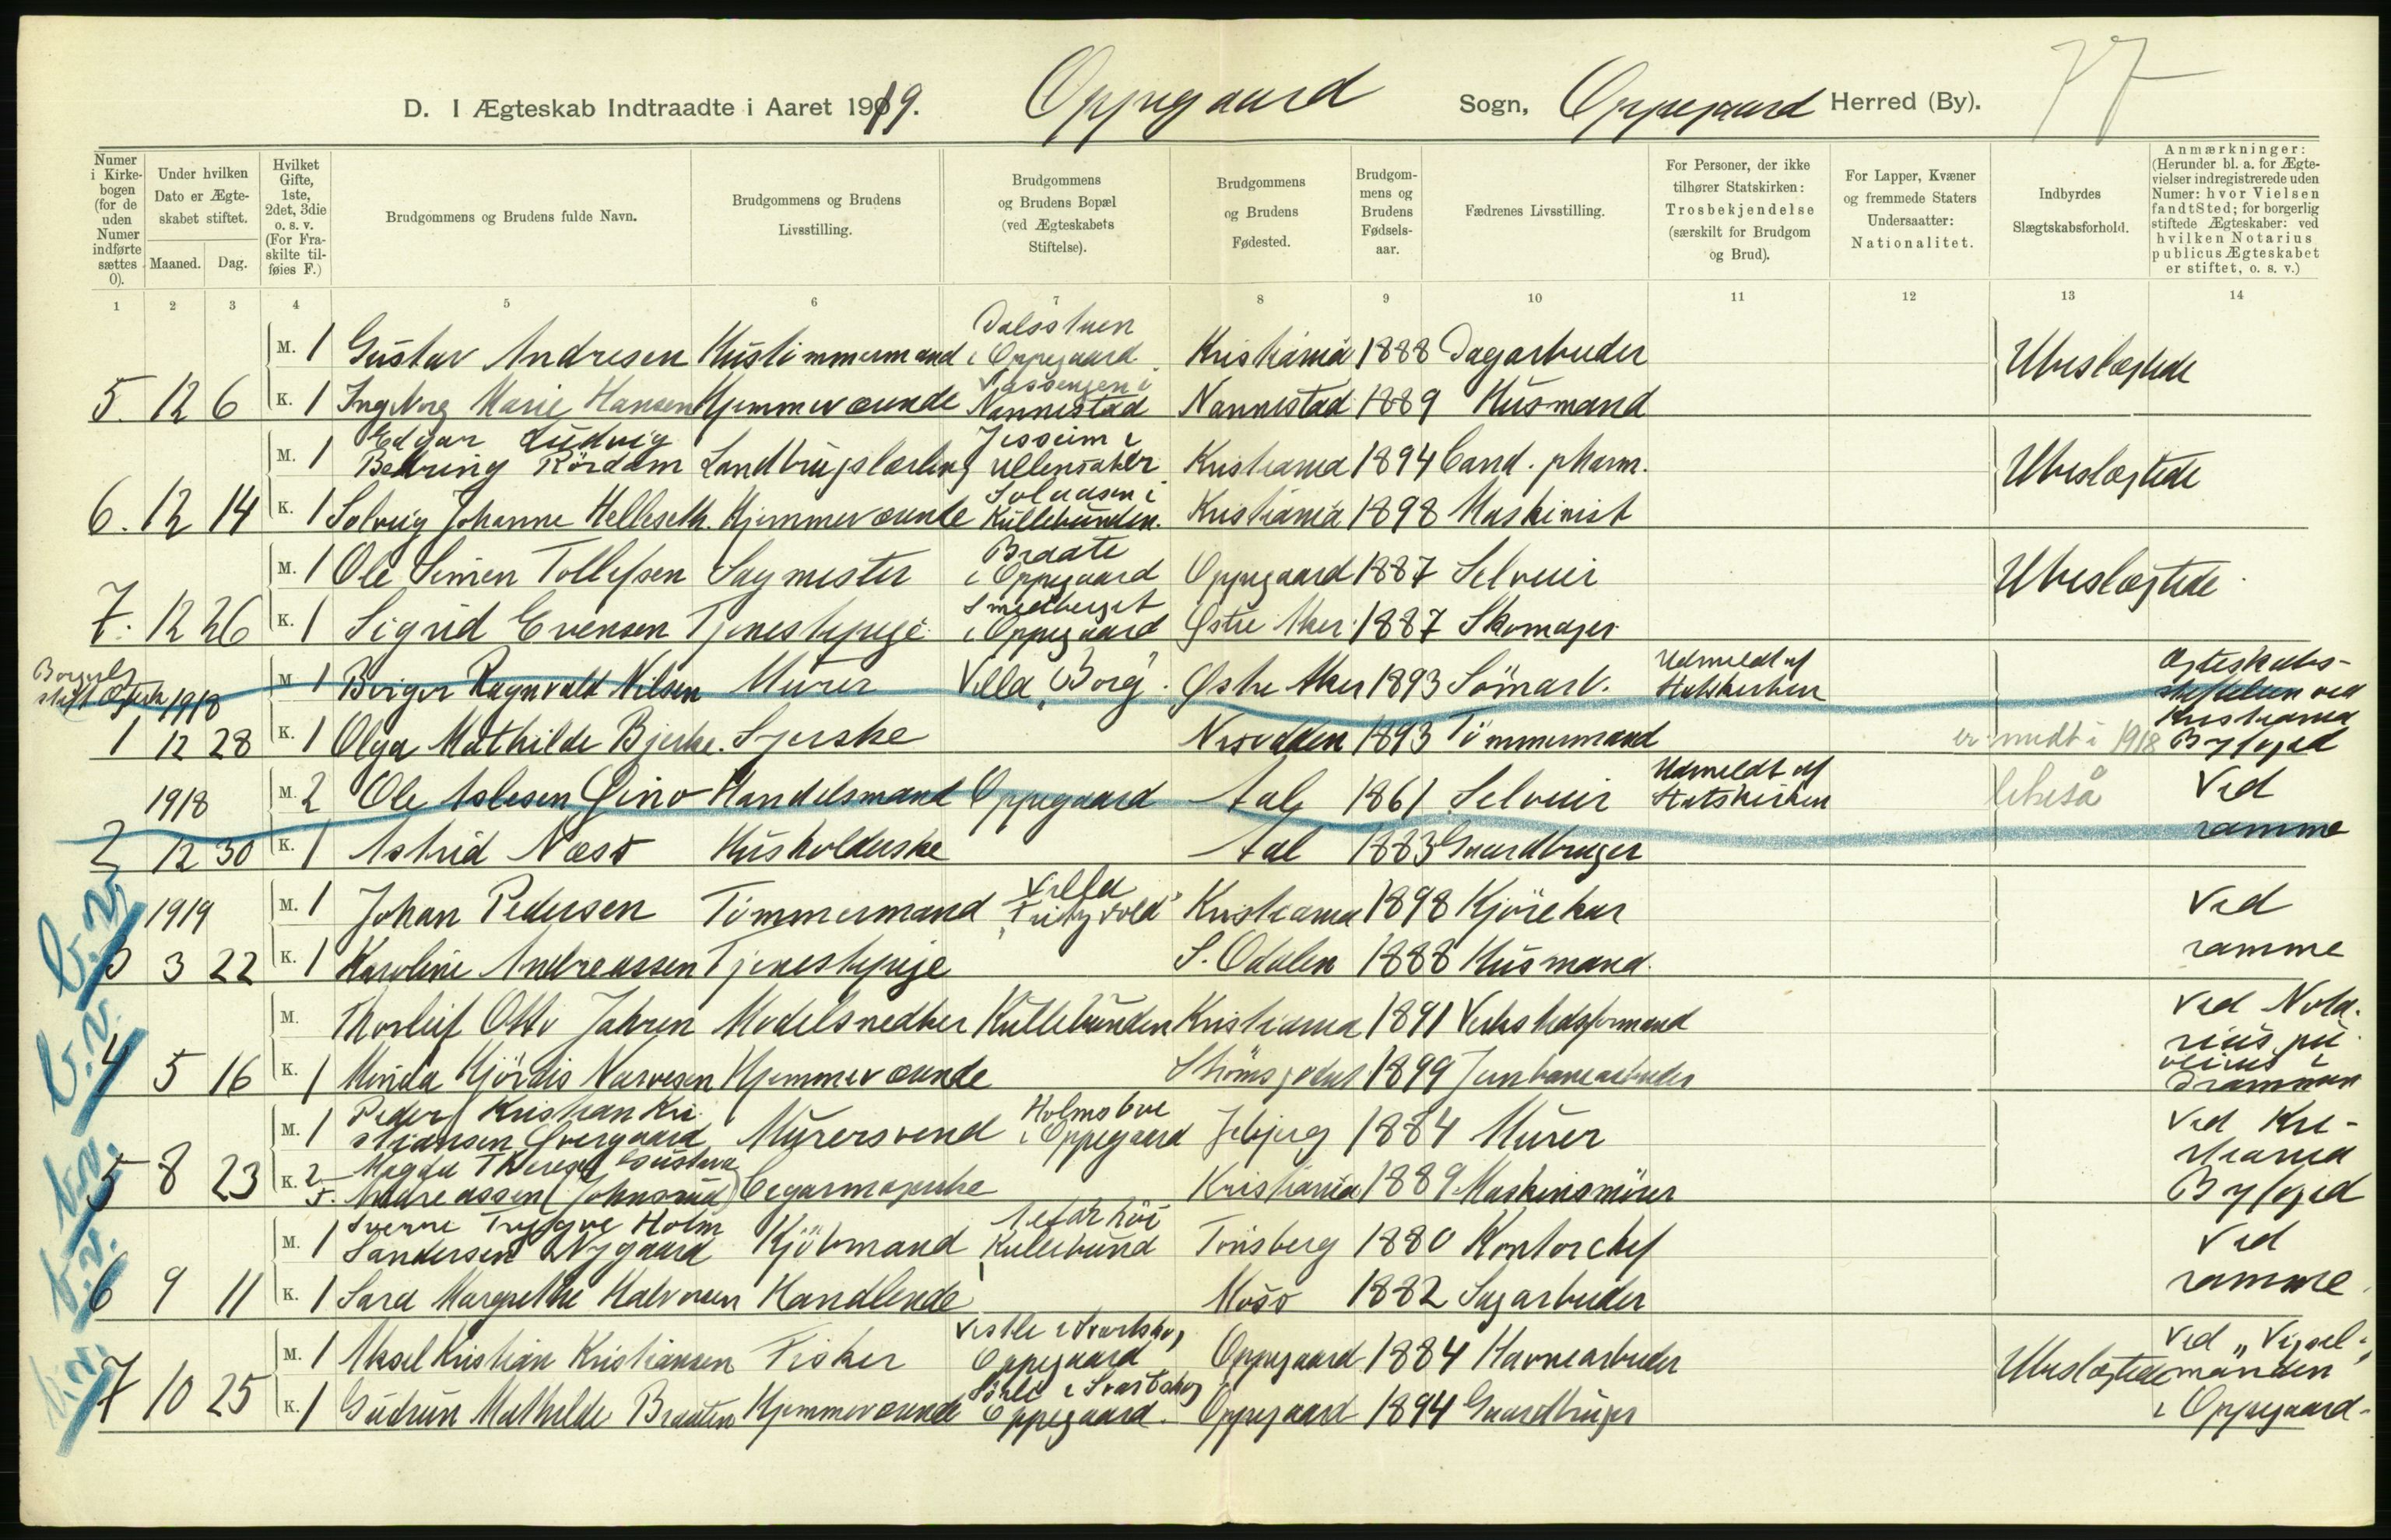 77
D. I Ægteskab Indtraadte i Aaret 1919. Oppegaard Sogn, Oppegaard Herred (By).
Numer i Kirkebogen (for de uden Numer indførte sættes 0).
Under hvilken Dato er Ægteskabet stiftet.
Maaned. Dag.
Hvilket Gifte, 1ste, 2det, 3die o. s. v. (For Fraskilte tilføies F.)
Brudgommens og Brudens fulde Navn.
Brudgommens og Brudens Livsstilling.
Brudgommens og Brudens Bopæl (ved Ægteskabets Stiftelse).
Brudgommens og Brudens Fødested.
Brudgommens og Brudens Fødselsaar.
Fædrenes Livsstilling.
For Personer, der ikke tilhører Statskirken: Trosbekjendelse (særskilt for Brudgom og Brud).
For Lapper, Kvæner og fremmede Staters Undersaatter: Nationalitet.
Indbyrdes Slægtskabsforhold.
Anmærkninger: (Herunder bl. a. for Ægtevielser indregistrerede uden Numer: hvor Vielsen fandt Sted; for borgerlig stiftede Ægteskaber: ved hvilken Notarius publicus Ægteskabet er stiftet, o. s. v.)
1 2 3 4 5 6 7 8 9 10 11 12 13 14
M. 1 Gustav Andresen Hustømmermand i Oppegaard Kristiania 1888 Dagarbeider Ubeslægtede
5. 12 6 K. 1 Ingeborg Marie Hansen Hjemmeværende Nannestad Nannestad 1889 Husmand
M. 1 Edgar Ludvig Behring Rørdam Landbrugslærling Jessheim i Ullensaker Kristiania 1894 Cand. pharm. Ubeslægtede
6. 12 14 K. 1 Solveig Johanne Helleseth. Hjemmeværende Kullebunden. Kristiania 1898 Maskinist
M. 1 Ole Simen Tollefsen Sagmester Braate i Oppegaard Oppegaard 1887 Selveier Ubeslægtede
7. 12 26 K. 1 Sigrid Evensen Tjenestepige Smedberget i Oppegaard Østre Aker 1887 Skomager
Borgerlig stift. Ægtesk. 1918 M. 1 Birger Ragnvald Nilsen Murer Villa "Borg". Østre Aker 1893 Sömarb. Udmeldt af Statskirken Ægteskabsstiftelsen ved
1 12 28 K. 1 Olga Mathilde Bjerke. Syerske Nesodden 1893 Tömmermand er medt i 1918 Kristiania Byfoged
1918 M. 2 Ole Aslesen Öino Handelsmand Oppegaard Aal 1861 Selveier Udmeldt af Statskirken likeså Ved
2 12 30 K. 1 Astrid Næss Husholderske Aal 1883 Gaardbruger samme
1919 M. 1 Johan Pedersen Tømmermand Villa "Fritzvold" Kristiania 1898 Kjörekar Ved
b.v. 3 3 22 K. 1 Karoline Andreassen Tjenestepige S. Odalen 1888 Husmand. samme
M. Thorleif Otto Jahren Modelsnedker Kullebunden Kristiania 1891 Verkstedsformand Ved Nota-
b.v. 4 5 16 K. 1 Minda Hjördis Narvesen Hjemmeværende Strömsgodset 1899 Jernbanearbeider rius publicus i Drammen
M. 1 Peder Kristian Kristiansen Övergaard Murersvend Holmsboe i Oppegaard Jebjerg 1884 Murer Ved Kristiania
b.v. 5 8 23 K. 2 F. Magda Therese Gustava Andreassen (Johnsrud) Cigarmagerske Kristiania 1889 Maskinsmörer Byfoged
M. 1 Sverre Tryggve Holm Sandersen Nygaard Kjöbmand Kullebund Tönsberg 1880 Kontorchef Ved
b.v. 6 9 11 K. 1 Sara Margrethe Halvorsen Handlende Moss 1882 Sagarbeider samme.
M. 1 Aksel Kristian Kristiansen Fisker Oppegaard Oppegaard 1884 Havnearbeider Ubeslægtede Ved "Vigsel-
b.v. 7 10 25 K. 1 Gudrun Mathilde Braaten Hjemmeværende i Svartskog Oppegaard. Oppegaard 1894 Gaardbruger manden" i Oppegaard.